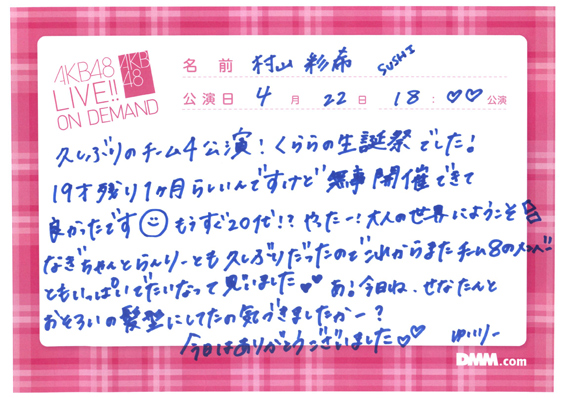 AKB48
LIVE!!
ON DEMAND
AKB
48
名前 村山 彩希 SUSHI
公演日 4月 22日 18:♡♡公演
久しぶりのチーム4公演!くららの生誕祭でした!
19才残り1ヶ月らしいんですけど無事開催できて
良かったです☺もうすぐ20代!?やったー!大人の世界にようこそ
なぎちゃんとらんりーとも久しぶりだったのでこれからまたチーム8のメンバー
ともいっぱいでたいなって思いました♡♡ あ!今日ね、せなたんと
おそろいの髪型にしてたの気づきましたかー?
今日はありがとうございました♡♡ ゆいりー
DMM.com